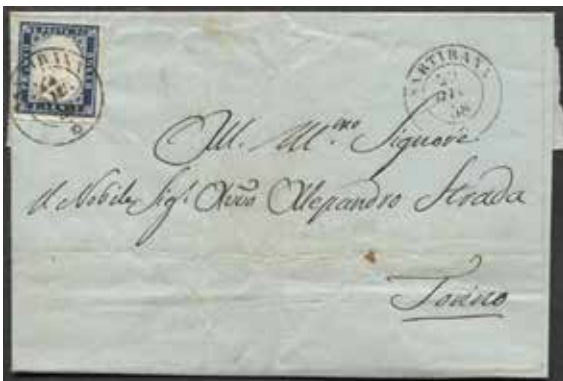 SARTIRANA
58
All. Ill.mo Signore
Il Nobile Sig.r Avv.o Alessandro Strada
Torino